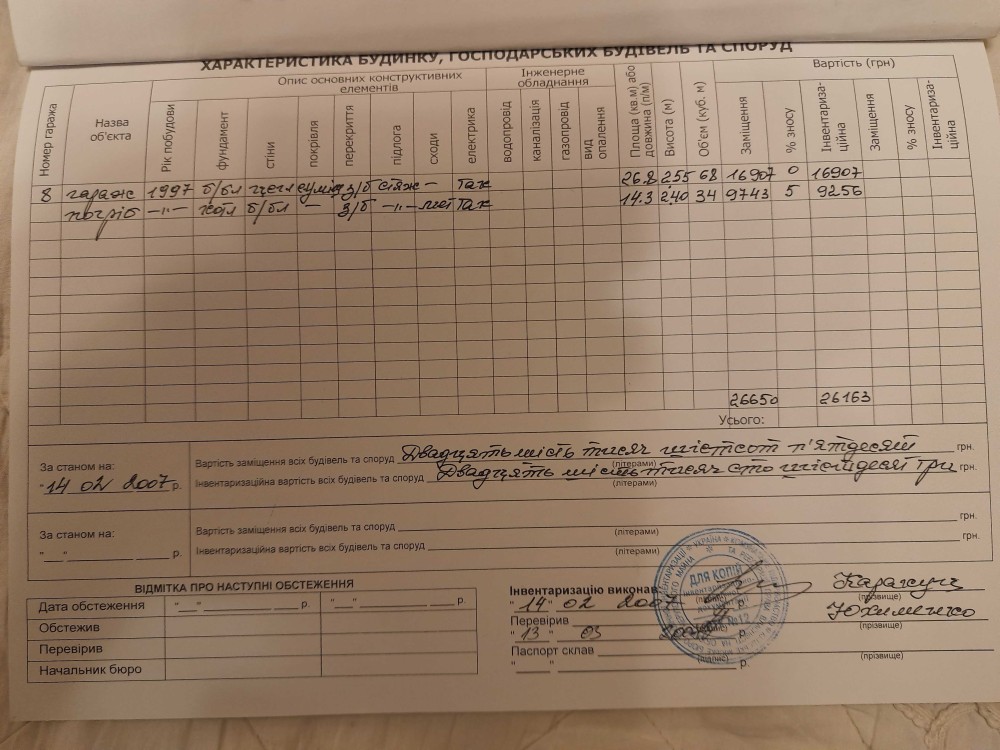 ХАРАКТЕРИСТИКА БУДИНКУ, ГОСПОДАРСЬКИХ БУДІВЕЛЬ ТА СПОРУД
Номер гаража
Назва об'єкта
Опис основних конструктивних елементів
Рік побудови
фундамент
стіни
покрівля
перекриття
підлога
сходи
електрика
Інженерне обладнання
водопровід
каналізація
газопровід
вид опалення
Площа (кв.м) або довжина (п/м)
Висота (м)
Об'єм (куб. м)
Вартість (грн)
Заміщення
% зносу
Інвентариза-ційна
Заміщення
% зносу
Інвентариза-ційна
8 гараж 1997 б/бл цегл з/б стяж – так 26.8 2.55 68 16907 0 16907
погріб –"– котл б/бл – з/б –"– мет так 14.3 2.40 34 9743 5 9256
26650 26163
Усього:
За станом на:
"14 02 2007 р.
Вартість заміщення всіх будівель та споруд Двадцять шість тисяч шістсот п'ятдесят грн.
(літерами)
Інвентаризаційна вартість всіх будівель та споруд Двадцять шість тисяч сто шістдесят три грн.
(літерами)
За станом на:
"__" ____ ____ р.
Вартість заміщення всіх будівель та споруд грн.
(літерами)
Інвентаризаційна вартість всіх будівель та споруд грн.
(літерами)
ВІДМІТКА ПРО НАСТУПНІ ОБСТЕЖЕННЯ
Дата обстеження "__" ____ р. "__" ____ р.
Обстежив
Перевірив
Начальник бюро
Інвентаризацію виконав
(прізвище)
"14" 02 2007 р.
Перевірив Юхименко
(прізвище)
"13" 03 р.
Паспорт склав
(підпис) (прізвище)
"__" ____ р.
ДЛЯ КОПІЙ
УКРАЇНА
№12